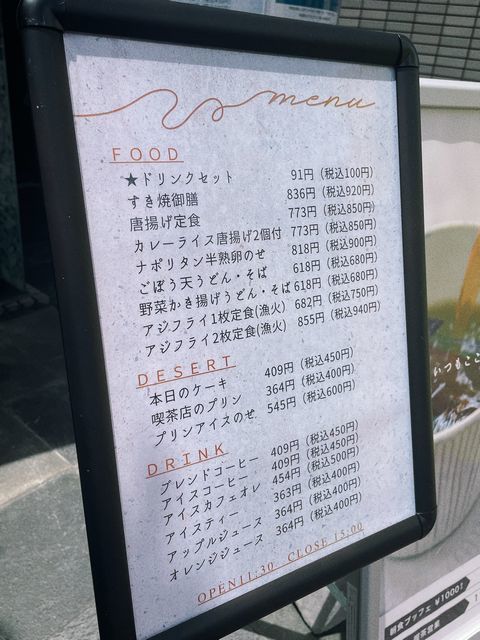 menu
FOOD
★ドリンクセット 91円（税込100円）
すき焼御膳 836円（税込920円）
唐揚げ定食 773円（税込850円）
カレーライス唐揚げ2個付 773円（税込850円）
ナポリタン半熟卵のせ 818円（税込900円）
ごぼう天うどん・そば 618円（税込680円）
野菜かき揚げうどん・そば 618円（税込680円）
アジフライ1枚定食(漁火) 682円（税込750円）
アジフライ2枚定食(漁火) 855円（税込940円）
DESERT
本日のケーキ 409円（税込450円）
喫茶店のプリン 364円（税込400円）
プリンアイスのせ 545円（税込600円）
DRINK
ブレンドコーヒー 409円（税込450円）
アイスコーヒー 409円（税込450円）
アイスカフェオレ 454円（税込500円）
アイスティー 363円（税込400円）
アップルジュース 364円（税込400円）
オレンジジュース 364円（税込400円）
OPEN11:30 CLOSE 15:00
いつもここ
朝食ブッフェ ¥1000!
喫茶営業